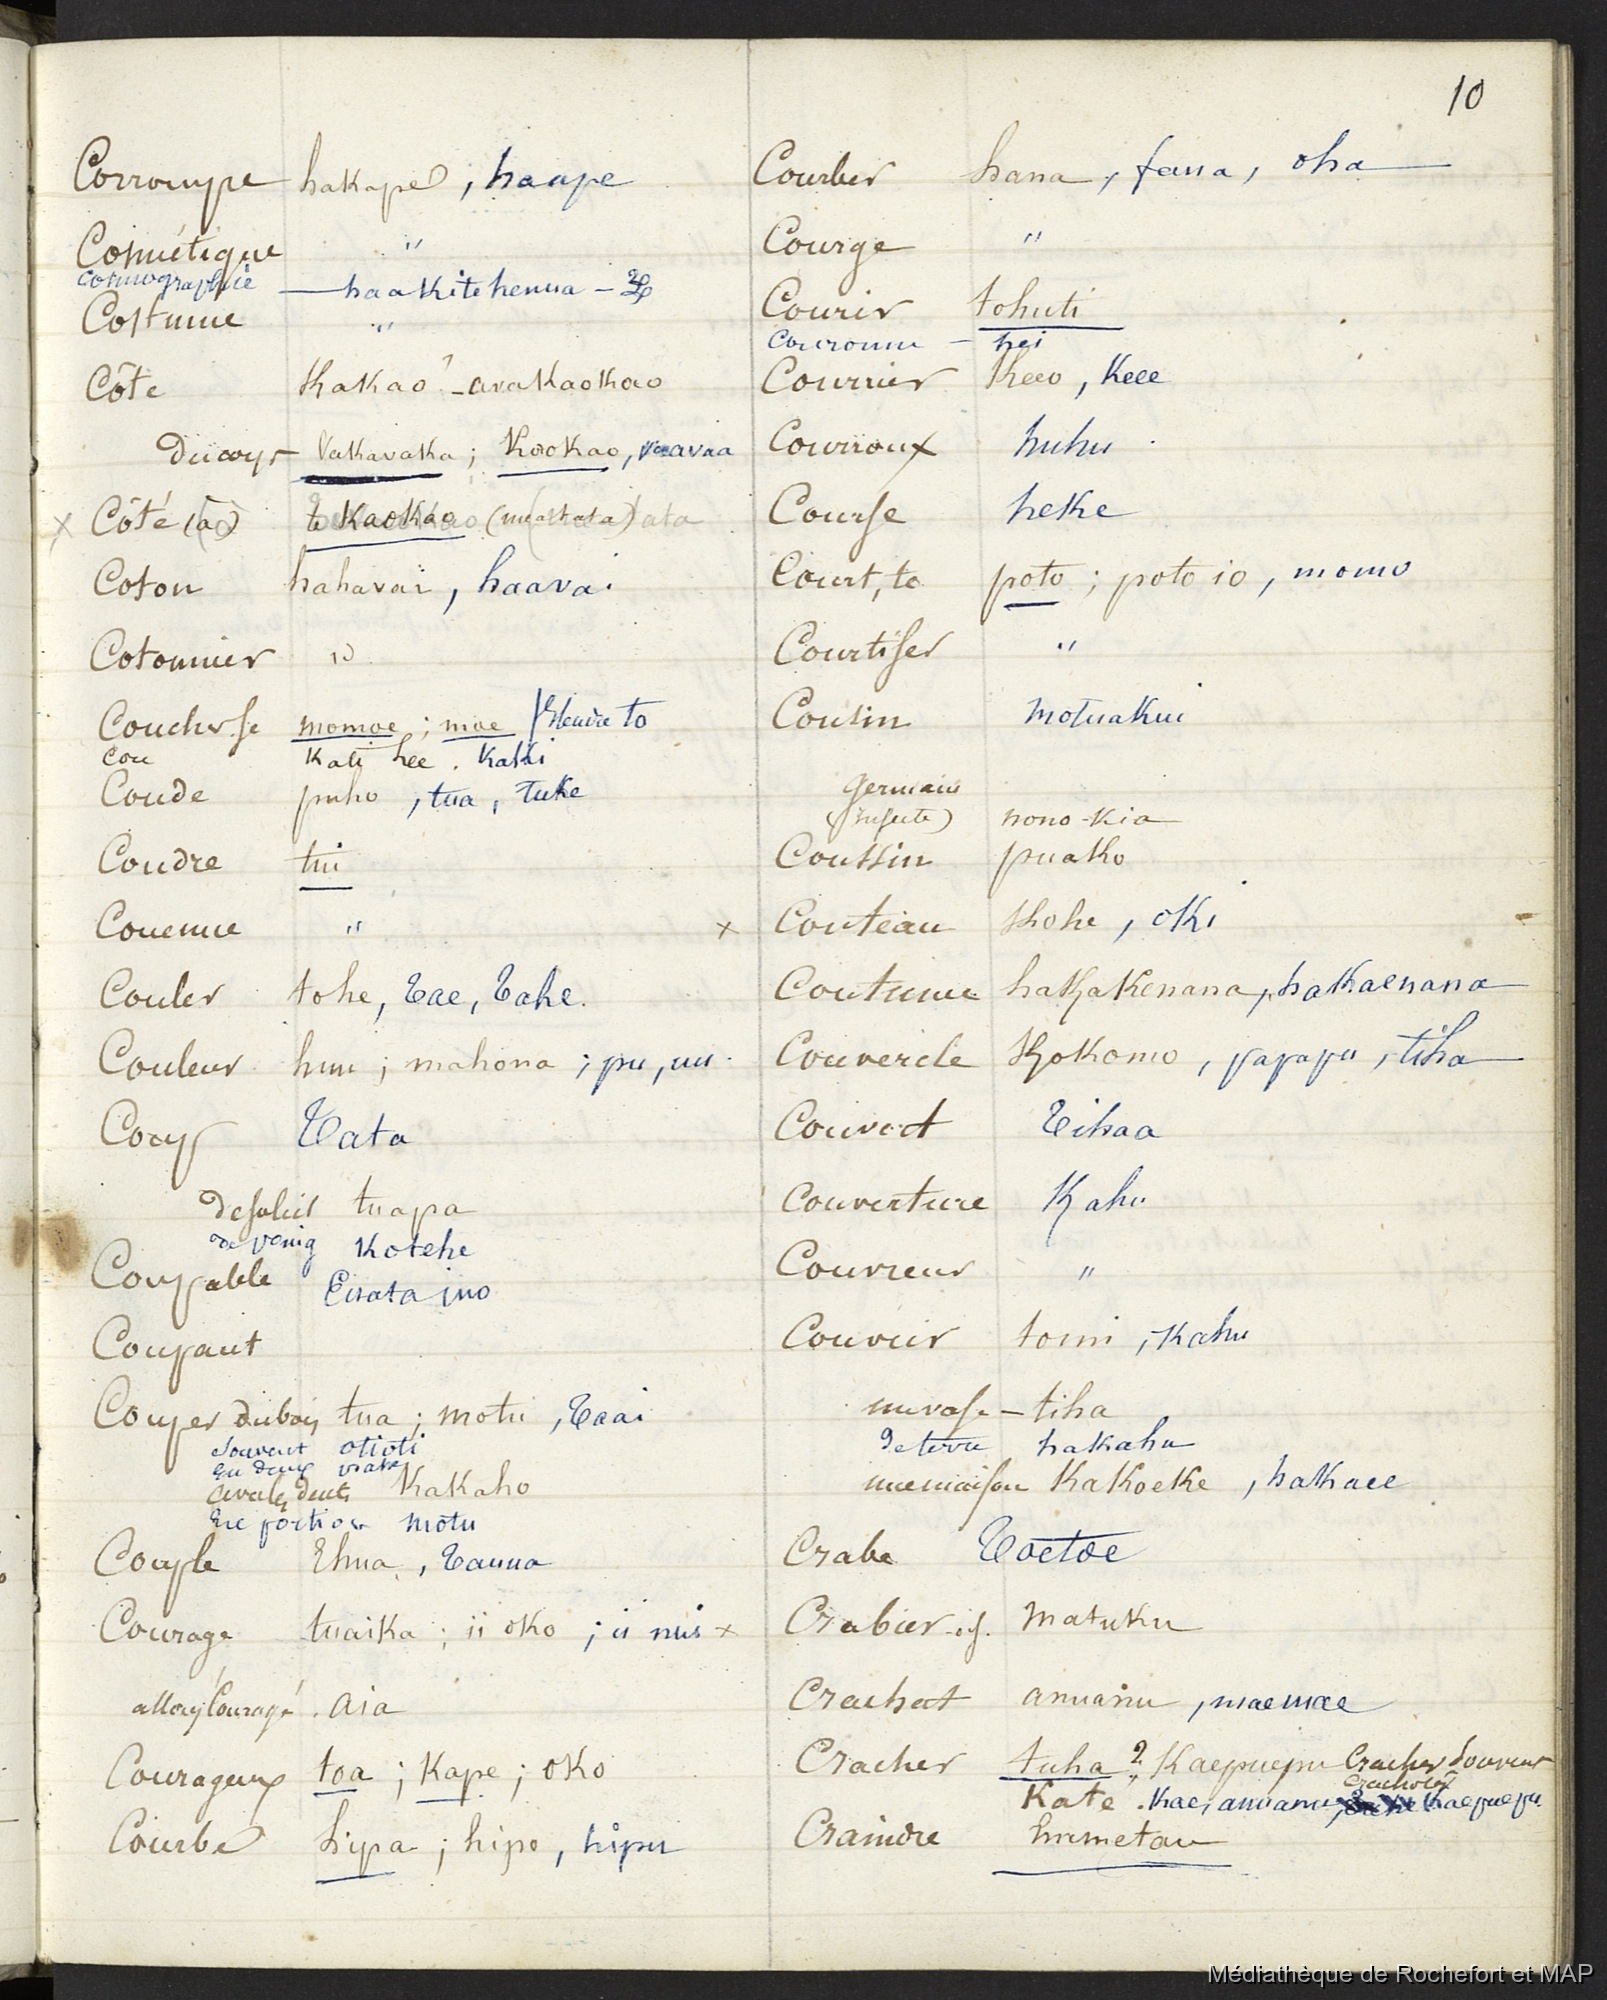 10
Corrompre hakape, haape
Cosmétique "
Cosmographie — haakitehenua –
Costume "
Côte Kakao ? – avakaokao
du corps Vakavaka ; Kaokao, vaavaa
x Côté (à) te Kaokao
Coton hahavai, haavai
Cotonnier id
Coucher se momoe ; moe Etendre to
Cou Kati hee . Kaki
Coude puho, tua, tuke
Coudre tui
Couenne "
Couler tohe, tae, tahe.
Couleur huu ; mahona ; pu, uu
Coup Tata
de fusil tuapa
de poing Kotehe
Coupable ino
Coupant
Couper du bois tua ; motu, taai
souvent otioti
en deux
avec les dents Kakaho
en portion motu
Couple Ehua, tauua
Courage tuaika ; ii oko ; ii nui x
allons Courage . Aia
Courageux toa ; Kape ; oko
Courbe hipa ; hipo, hipu
Courber hana, fana, oha
Courge "
Courir tohuti
Couronne – hei
Courrier Keeo, Keee
Courroux huhu
Course heke
Court, te poto ; poto io, momo
Courtiser "
Cousin motuakui
germain
(insecte) nono-kia
Coussin puako
x Couteau Kohe, oki
Coutume hakakenana, hakaenana
Couvercle Kokomo, papapu, tiha
Couvert Tihaa
Couverture Kahu
Couvreur "
Couvrir tomi, Kahu
un vase – tiha
de terre hakahu
une maison Kakoeke, hakaee
Crabe Toetoe
Crabier – ois. Matuku
Crachat anuanu, maemae
Cracher tuha ? Kaepuepu Cracher souvent
Crachoter
Kate . Kae, anuanu, Kaepuepu
Craindre hametau
Médiathèque de Rochefort et MAP